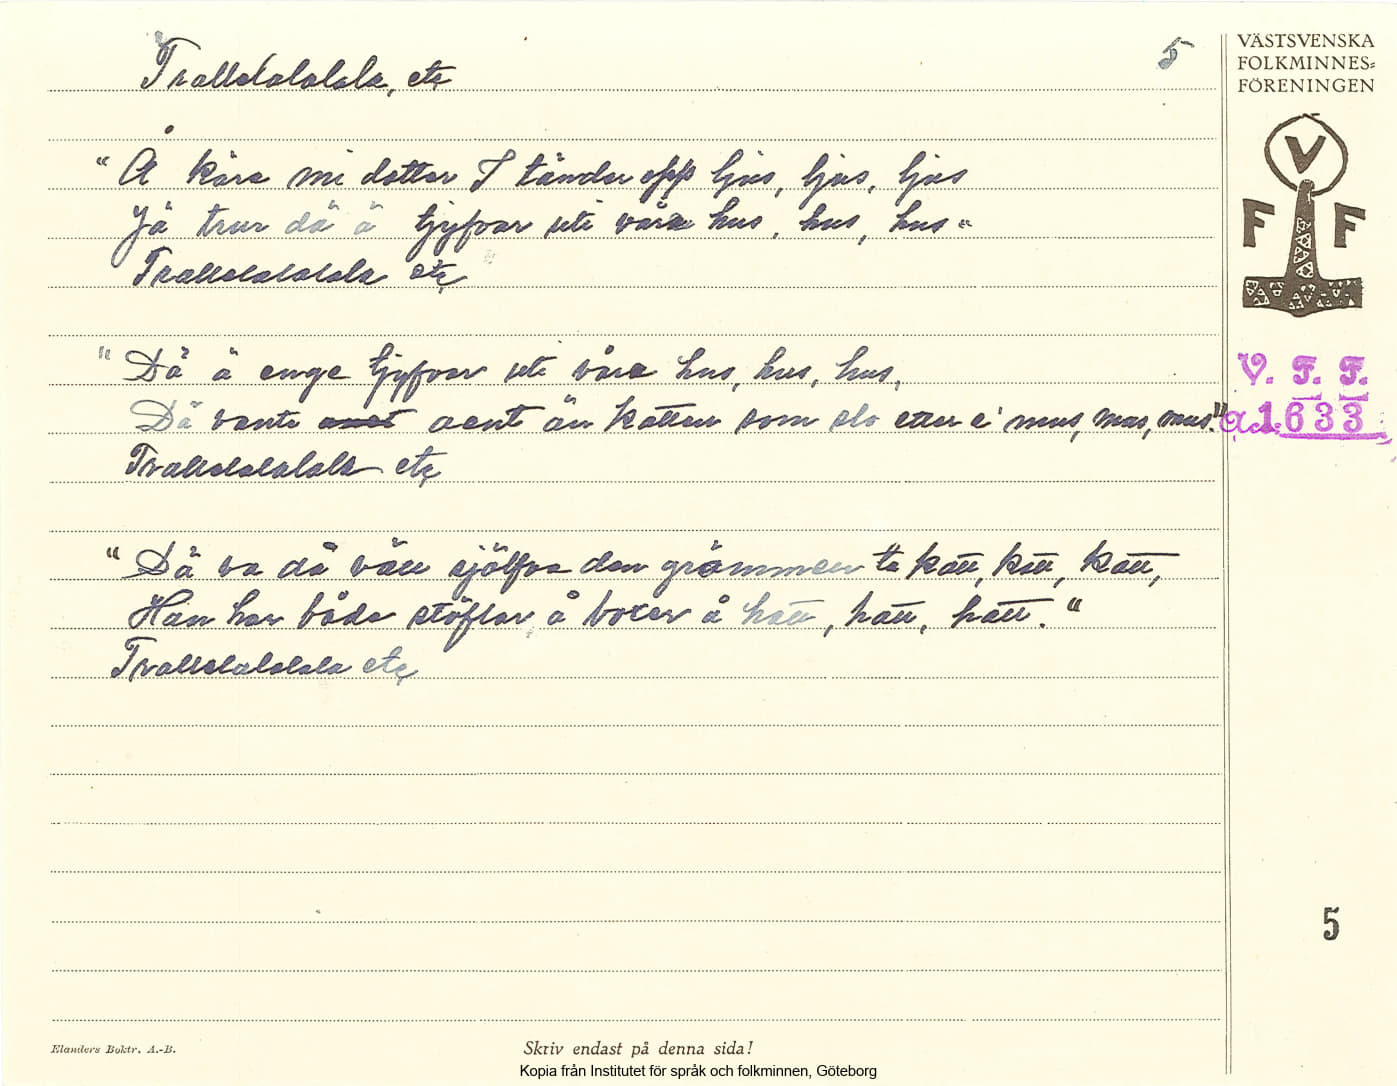 5
Trallelalalala, etc
"Å kära mi dotter I tänder opp ljus, ljus, ljus
Jä trur dä ä tjyfvar uti våra hus, hus, hus"
Trallelalalala etc
"Dä ä enge tjyfvar uti våra hus, hus, hus,
Dä vante aent än katten som slo etter ei mus, mus, mus."
Trallelalalala etc
"Dä va då väll sjölfva den grämmen te katt, katt, katt,
Han har både stöflar å boxer å hatt, hatt, hatt."
Trallelalalala etc
VÄSTSVENSKA
FOLKMINNES=
FÖRENINGEN
V
F F
V. F. F.
a.1633
5
Elanders Boktr. A.-B.
Skriv endast på denna sida!
Kopia från Institutet för språk och folkminnen, Göteborg